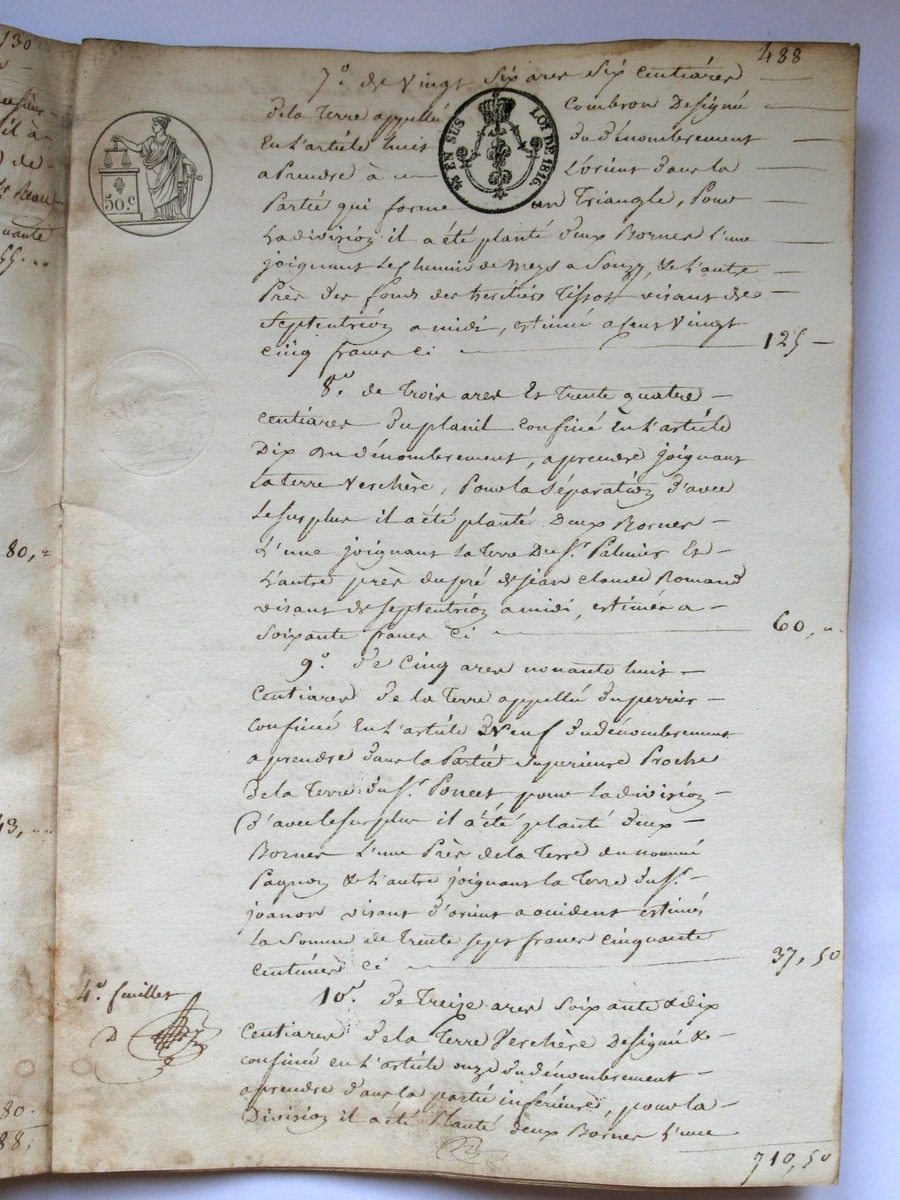 130
488
7º. de Vingt Six ares Six Centiares
de la Terre appellé Combron Designé
En L'article huit du dénombrement
a Prendre à L'orient dans la
Partie qui forme un Triangle, Pour
La division il a été planté deux Bornes L'une
joignant Le Chemin de Meys a Souzy, & L'autre
Près des fonds des heritiers Tissot visant de
Septentrion a midi, estimé a Cent Vingt
Cinq francs Ci 125
EN SUS LOI DE 1816.
50.c
8º. de Trois ares Et Trente quatre
Centiares du planil Confiné En L'article
Dix du dénombrement, a prendre joignant
La terre Verchère, Pour la Séparation d'avec
Le Surplus il a été planté Deux Bornes
L'une joignant la Terre Du Sr. Palmier Et
L'autre près du pré de jean Claude Romand
visant de Septentrion a midi, estimés a
Soixante francs Ci 60, "
9º. de Cinq ares nonante huit
Centiares de la Terre appellé du perrier
Confiné En L'article Neuf du dénombrement
a prendre dans la Partie Superieure Proche
De la Terre du Sr. Poncet pour La division
D'avec le Surplus il a été planté deux
Bornes L'une Près de la Terre du nommé
Pagnon & L'autre joignant La Terre du Sr.
joanon visant d'orient a occident estimés
la Somme de Trente Sept francs Cinquante
Centimes Ci 37, 50
4e. feuillet
10º. de Treize ares Soixante & dix
Centiares de la Terre Verchère Designé &
Confiné en L'article onze du dénombrement
a prendre dans la partie inférieure, pour la
Division il a été Planté deux Bornes L'une
710, 50
80, "
43, "
80.
88.